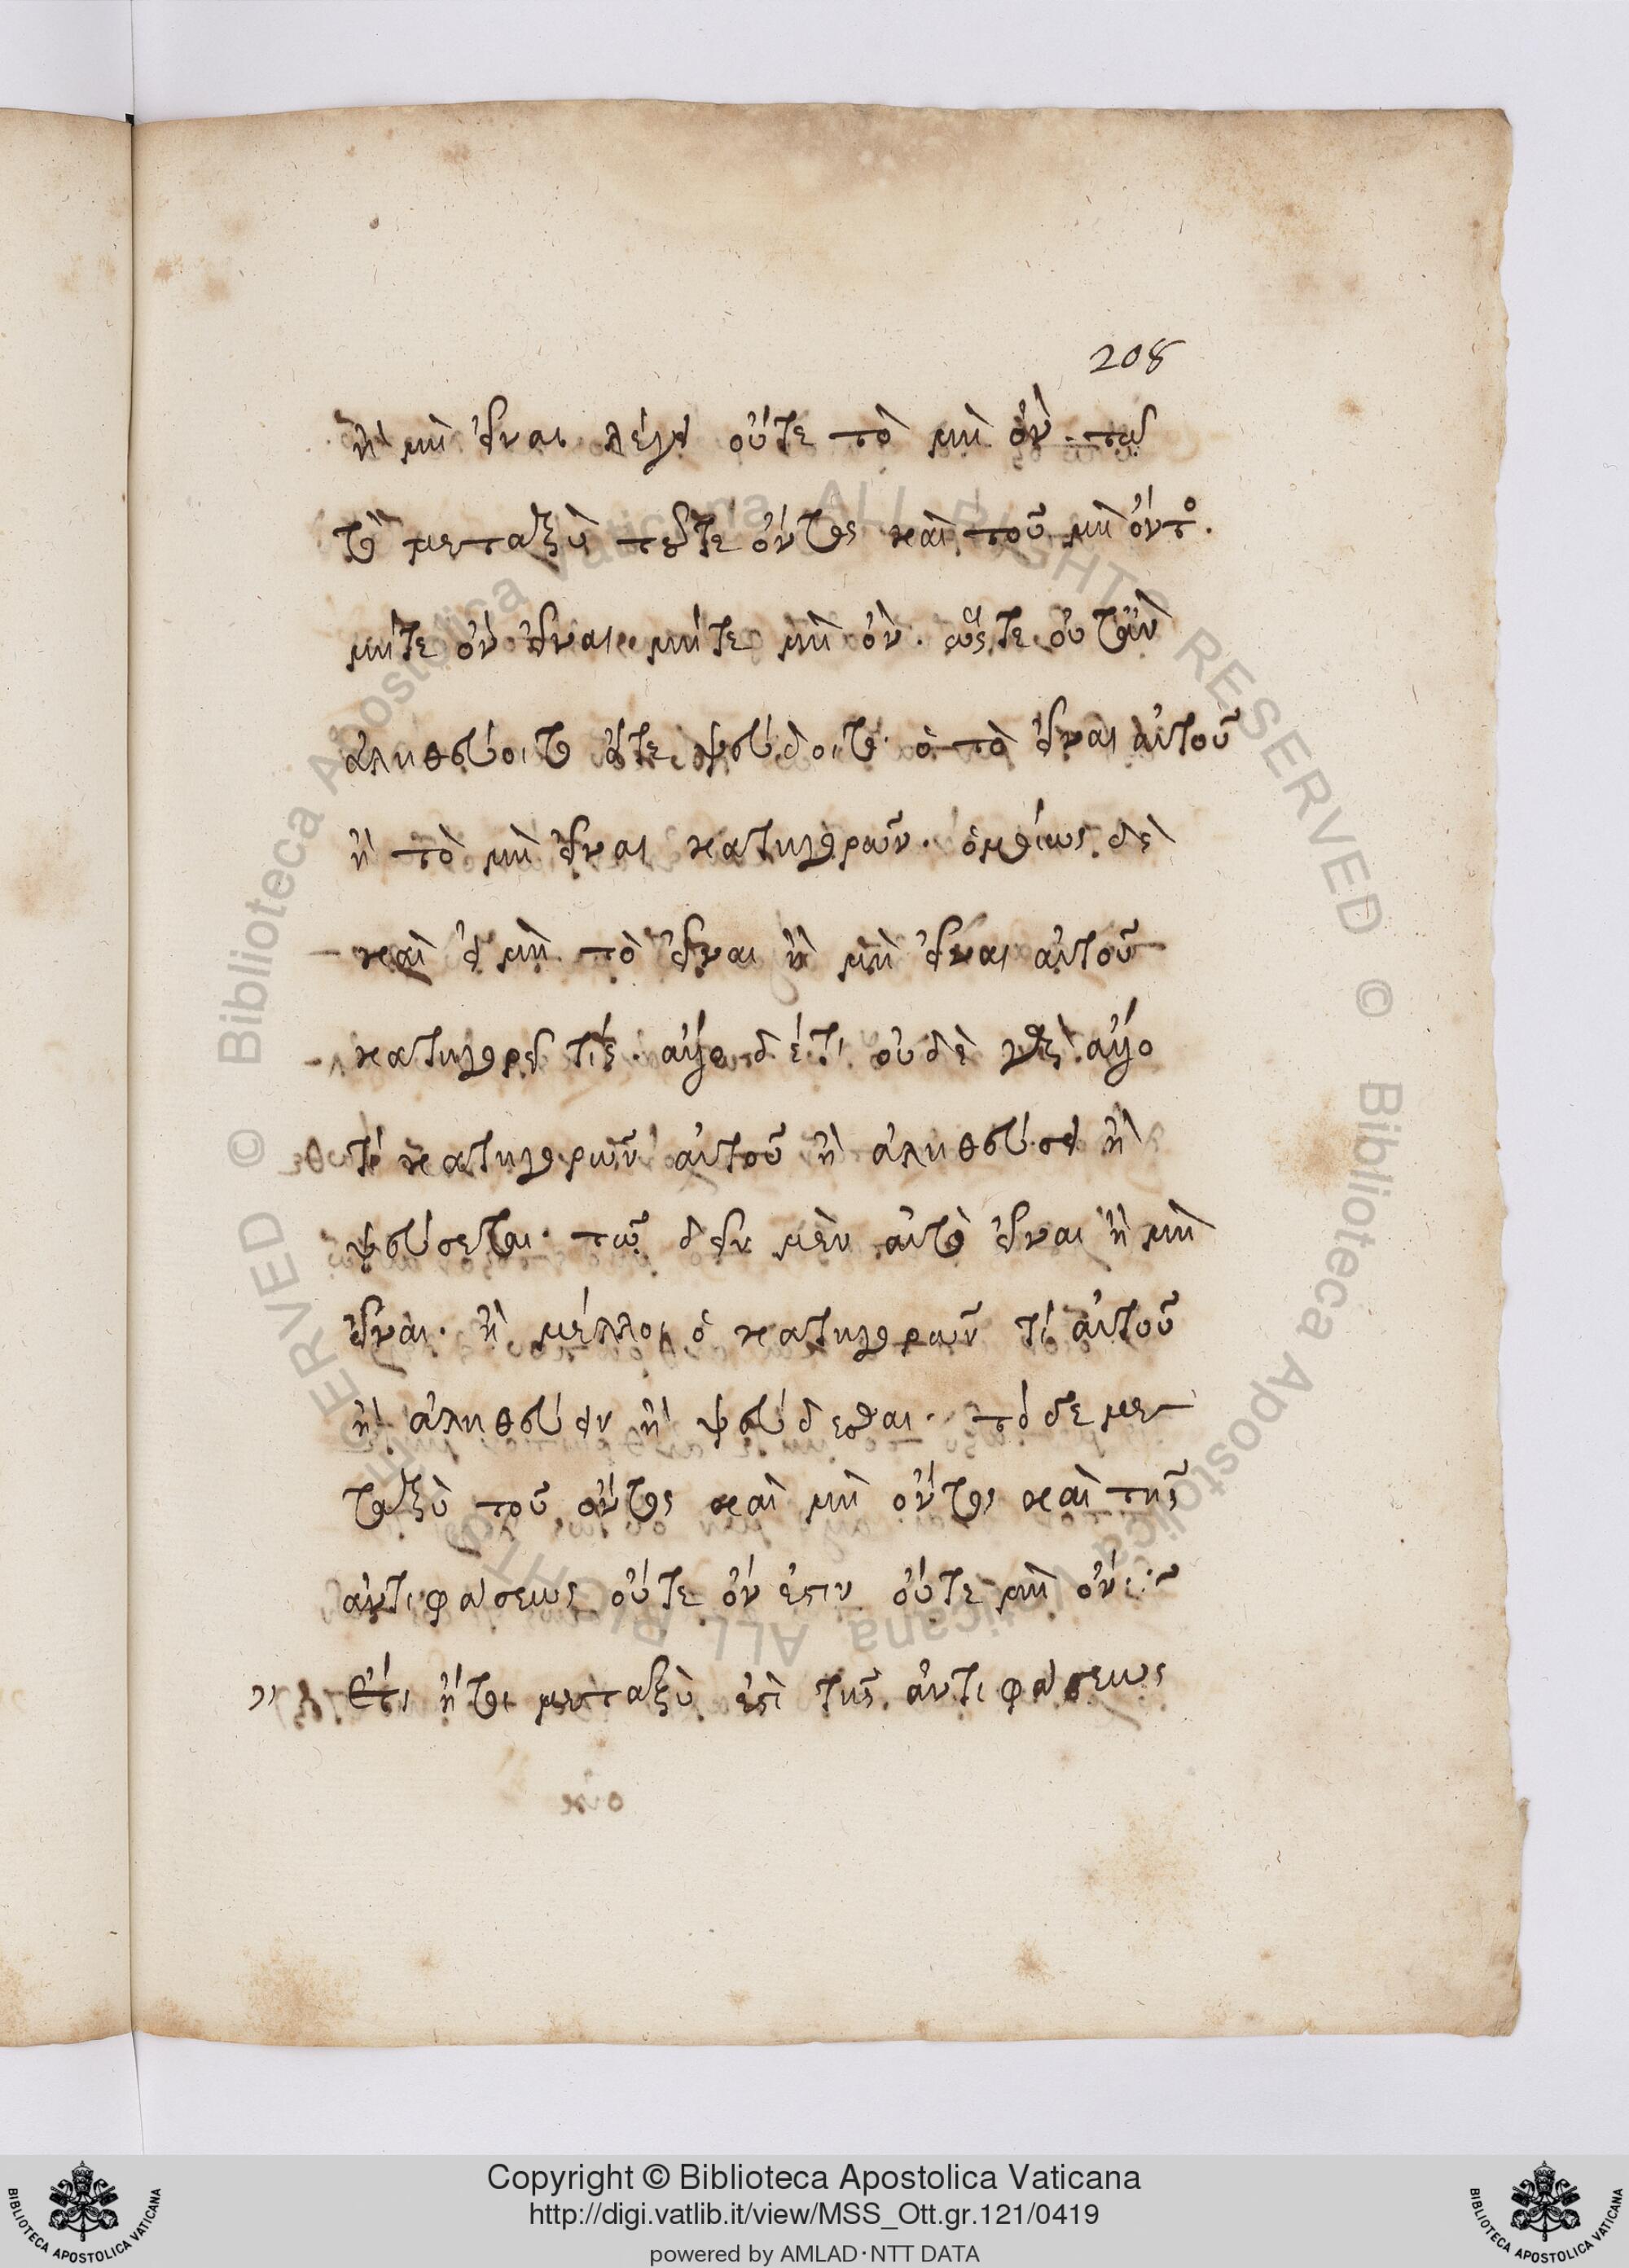 208
ἢ μὴ εἶναι λέγει οὔτε τὸ μὴ ὄν. τῶ
τὸ μεταξὺ τοῦτε ὄντος καὶ τοῦ μὴ ὄντος.
μήτε ὂν εἶναι μήτε μὴ ὄν. ὥστε οὔτ' ἂν
ἀληθεύοιτο οὔτε ψεύδοιτο ὁ τὸ εἶναι αὐτοῦ
ἢ τὸ μὴ εἶναι κατηγορῶν. ὁμοίως δὲ
καὶ εἰ μὴ τὸ εἶναι ἢ μὴ εἶναι αὐτοῦ
κατηγορεῖ τίς. ἄλλο δέ τι οὐδὲ γὰρ ἄλλο
τί κατηγορῶν αὐτοῦ ἢ ἀληθεύσει ἢ
ψεύσεται. τῶ δεῖν μὲν αὐτὸ εἶναι ἢ μὴ
εἶναι. ἢ μέλλοι ὁ κατηγορῶν τί αὐτοῦ
ἢ ἀληθεύειν ἢ ψεύδεσθαι. τὸ δε με
ταξὺ τοῦ ὄντος καὶ μὴ ὄντος καὶ τῆς
ἀντιφάσεως οὔτε ὄν ἐστιν οὔτε μὴ ὄν:~
Ἔτι ἤτοι μεταξὺ ἐπὶ τῆς ἀντιφάσεως
Copyright © Biblioteca Apostolica Vaticana
http://digi.vatlib.it/view/MSS_Ott.gr.121/0419
powered by AMLAD·NTT DATA
BIBLIOTECA APOSTOLICA VATICANA
BIBLIOTECA APOSTOLICA VATICANA
© Biblioteca Apostolica Vaticana ALL RIGHTS RESERVED
© Biblioteca Apostolica Vaticana ALL RIGHTS RESERVED